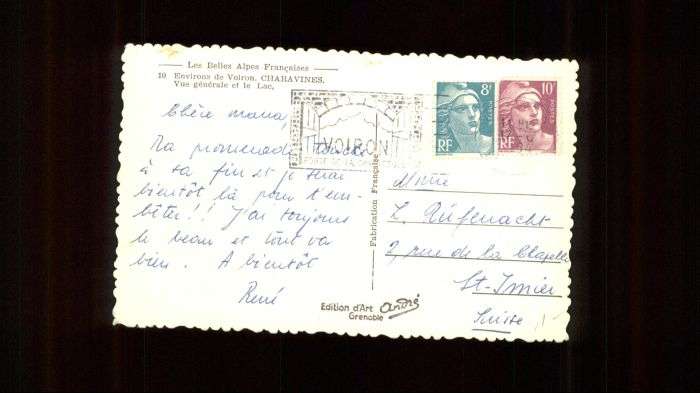 Les Belles Alpes Françaises
10 Environs de Voiron, CHARAVINES,
Vue générale et le Lac,
Chère mama,
Ma promenade touche
à sa fin et je serai
bientôt là pour t'em-
bêter!! J'ai toujours
le beau et tout va
bien. A bientôt
René
VOIRON
PORTE DE LA
8F
POSTES
RF
10F
POSTES
RF
Fabrication Française
Mme
Z. Rüfenacht
2, rue de la Chapelle
St-Imier
Suisse
Edition d'Art André
Grenoble